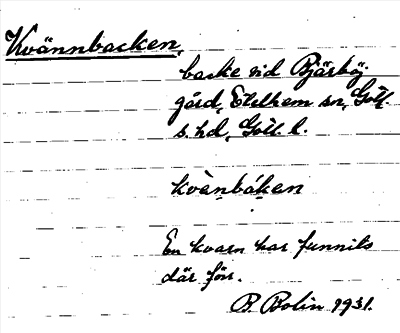 Kvännbacken,
backe vid Bjärböj
gård, Etelhem sn, Gotl.
s. hd, Gotl. l.
kvänbáken
En kvarn har funnits
där förr.
B. Bolin 1931.